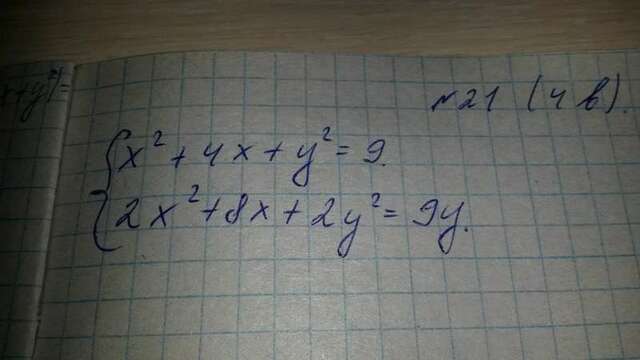 x+y²)=
№21 (4 в).
x² + 4x + y² = 9.
2x² + 8x + 2y² = 9y.